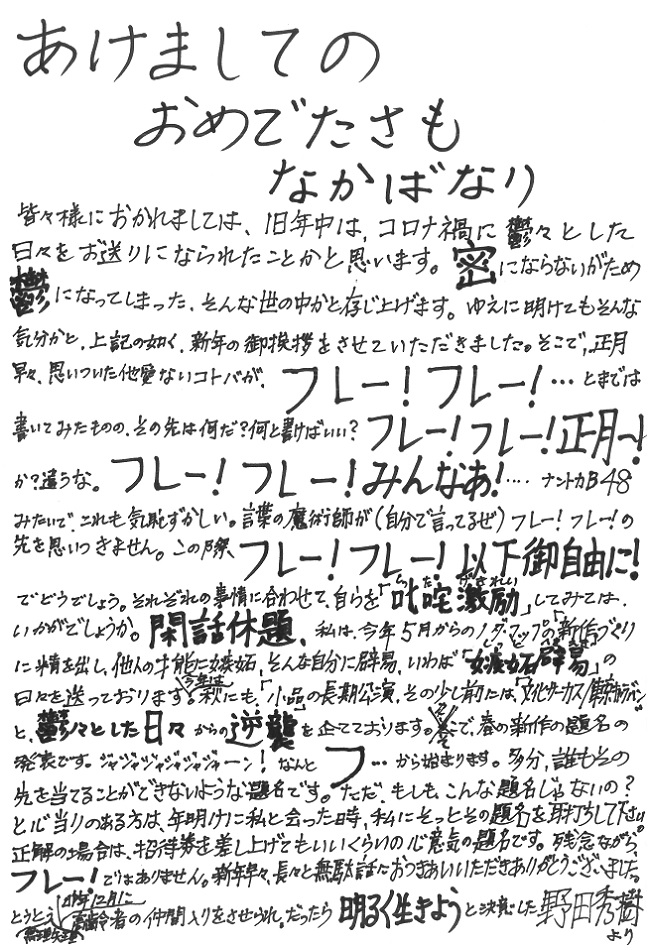 あけましての
おめでたさも
なかばなり
皆々様におかれましては、旧年中は、コロナ禍に鬱々とした
日々をお送りになられたことかと思います。密にならないがため
鬱になってしまった、そんな世の中かと存じ上げます。ゆえに明けてもそんな
気分かと、上記の如く、新年の御挨拶をさせていただきました。そこで、正月
早々、思いついた他愛ないコトバが、フレー!フレー!…とまでは
書いてみたものの、その先は何だ?何と書けばいい?フレー!フレー!正月~!
か?違うな。フレー!フレー!みんなあ!…ナントカB48
みたいで、これも気恥ずかしい。言葉の魔術師が(自分で言ってるぜ)フレー!フレー!の
先を思いつきません。この際、フレー!フレー!以下御自由に!
でどうでしょう。それぞれの事情に合わせて、自らを「叱咤激励」してみては、
いかがでしょうか。閑話休題、私は、今年5月からのノダ・マップの「新作づくり
に情を出し、他人の才能に嫉妬、そんな自分に辟易、いわば「嫉妬辟易」の
日々を送っております。今年は秋にも、「小品」の長期公演、その少し前には、「文化サーカス
と、鬱々とした日々からの逆襲を企てております。で、春の新作の題名の
発表です。ジャジャジャジャジャジャーン!なんとフ…から始まります。多分、誰もその
先を当てることができないような題名です。ただ、もしも、こんな題名じゃないの?
と心当りのある方は、年明けに私と会った時、私にそっとその題名を耳打ちして下さい
正解の場合は、招待券を差し上げてもいいくらいの心意気の題名です。残念ながら、
フレー!ではありません。新年早々、長々と無駄話におつきあいいただきありがとうございました。
とうとう昨年12月に高齢者の仲間入りをさせられ、だったら明るく生きようと決意した野田秀樹
より